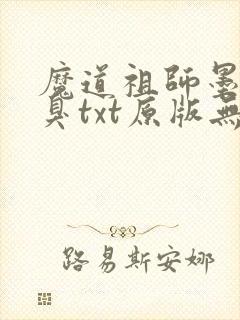 魔道祖師墨
臭txt原版無
路易斯安娜